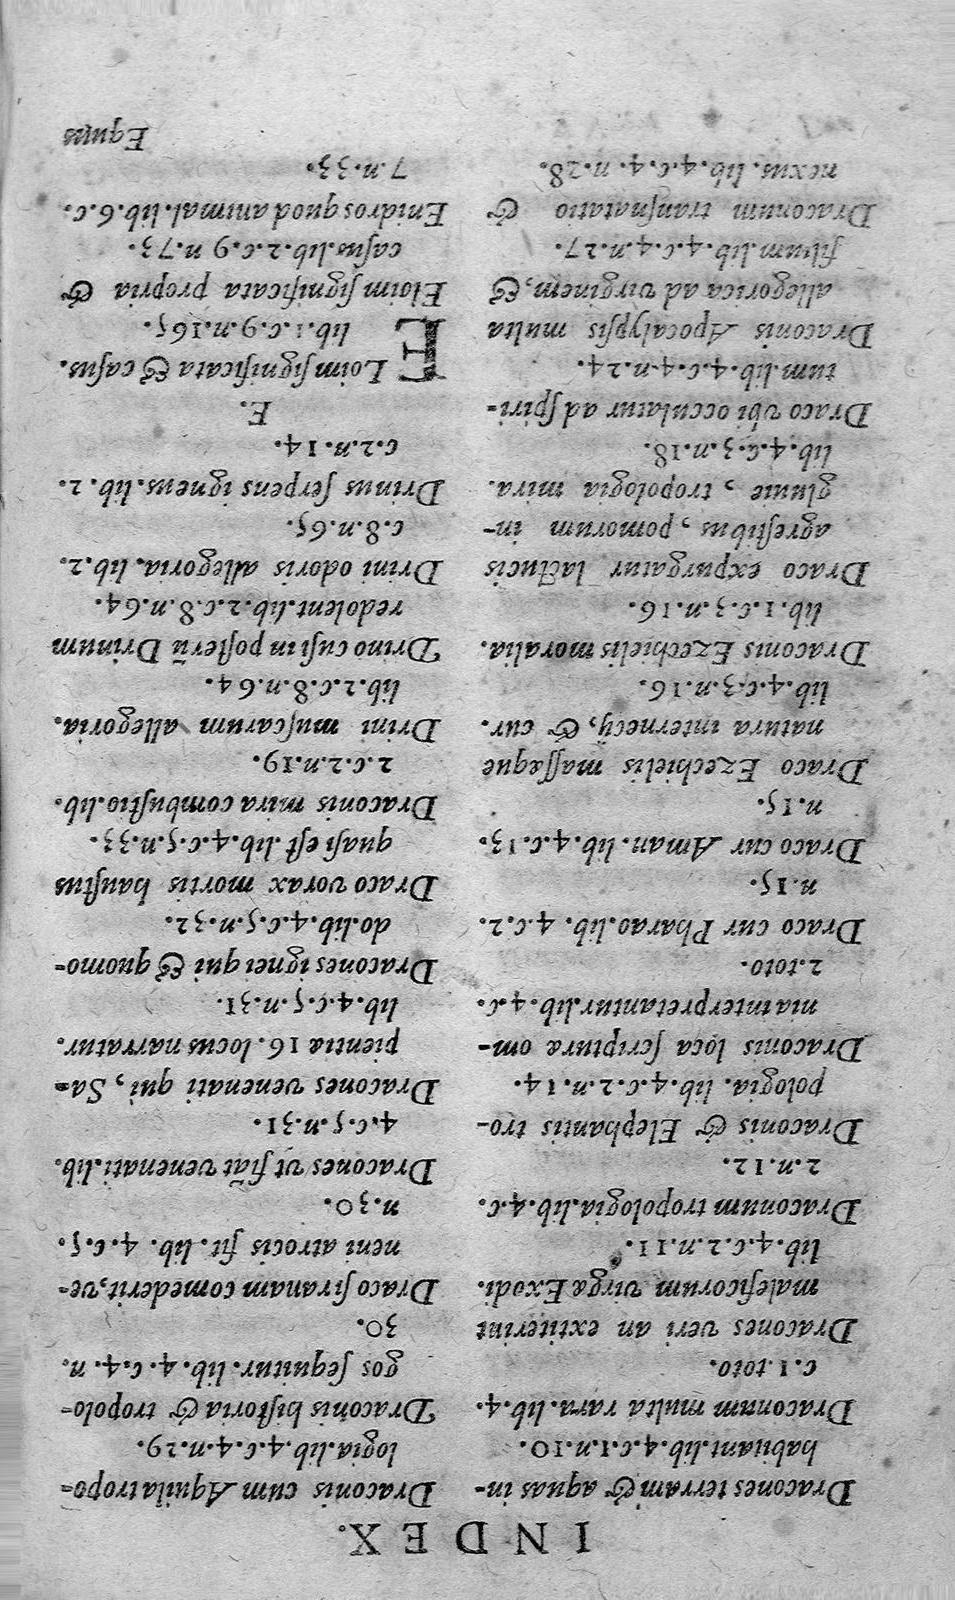 INDEX.
Dracones terram & aquas in-
habitant.lib.4.c.1.n.10.
Draconum multa rara.lib.4.
c.1.toto.
Dracones veri an extiterint
maleficorum virgæ Exodi.
lib.4.c.2.n.11.
Draconum tropologia.lib.4.c.
2.n.12.
Draconis & Elephantis tro-
pologia. lib.4.c.2.n.14.
Draconis loca scripturæ om-
nia interpretantur.lib.4.c.
2.toto.
Draco cur Pharao.lib. 4.c.2.
n.15.
Draco cur Aman.lib.4.c.13.
n.15.
Draco Ezechielis massæque
natura internecij, & cur.
lib.4.c.3.n.16.
Draconis Ezechielis moralia.
lib.1.c.3.n.16.
Draco expurgatur lactucis
agrestibus, pomorum in-
gluuie, tropologia mira.
lib.4.c.3.n.18.
Draco vbi occulatur ad spiri-
tum.lib.4.c.4.n.24.
Draconis Apocalypsis multa
allegorica ad virginem, &
filium.lib.4.c.4.n.27.
Draconum transnatatio &
nexus.lib.4.c.4.n.28.
Draconis cum Aquila tropo-
logia.lib.4.c.4.n.29.
Draconis historia & tropolo-
gos sequitur.lib.4.c.4. n.
30.
Draco si ranam comederit, ve-
neni atrocis fit.lib. 4.c.5.
n.30.
Dracones vt fiāt venenati.lib.
4.c.5.n.31.
Dracones venenati qui, Sa-
pientiæ 16.locus narratur.
lib.4.c.5.n.31.
Dracones ignei qui & quomo-
do.lib.4.c.5.n.32.
Draco vorax mortis haustus
quasi est.lib.4.c.5.n.33.
Draconis mira combustio.lib.
2.c.2.n.19.
Drini muscarum allegoria.
lib.2.c.8.n.64.
Drino cusi in posterū Drinum
redolent.lib.2.c.8.n.64.
Drini odoris allegoria.lib.2.
c.8.n.65.
Drinus serpens igneus.lib.2.
c.2.n.14.
E.
ELoim significata & casus.
lib.1.c.9.n.165.
Eloim significata propria &
casus.lib.2.c.9 n.73.
Enidros quod animal.lib.6.c.
7.n.33.
Equus